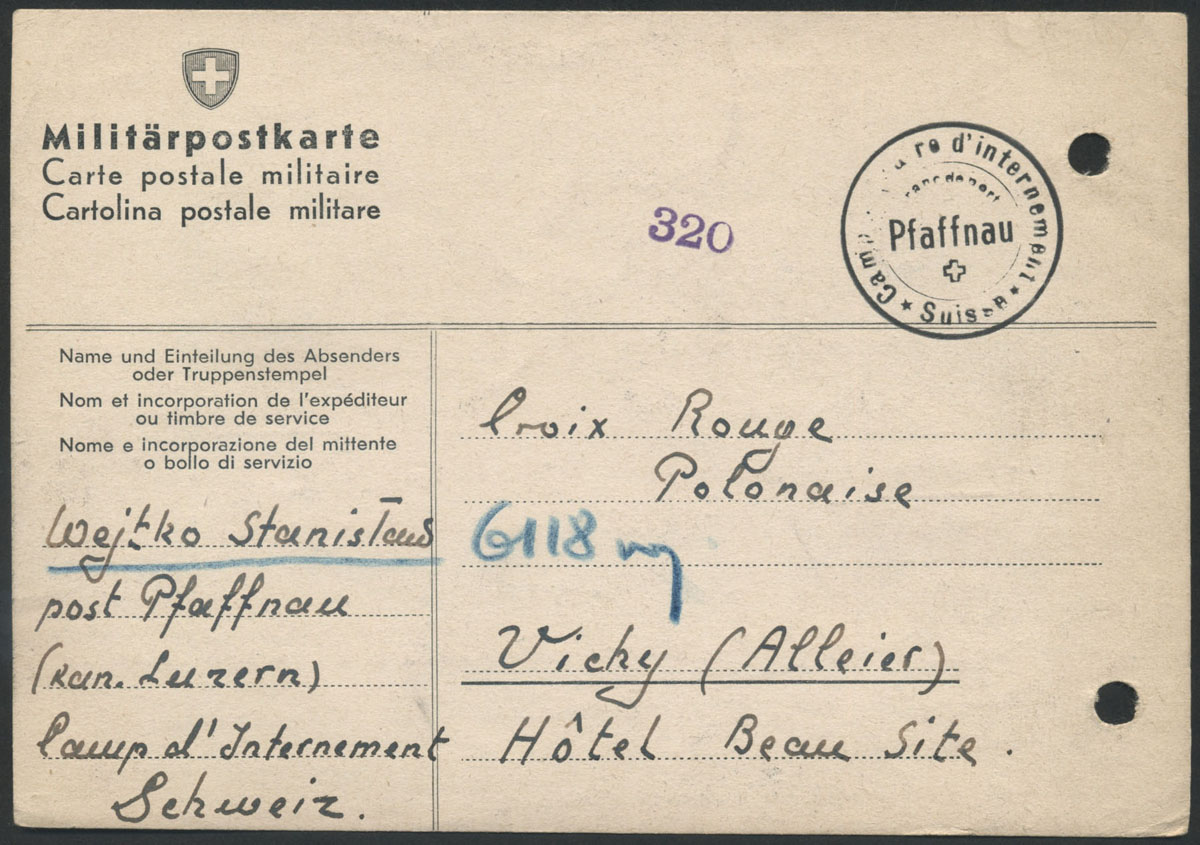 Militärpostkarte
Carte postale militaire
Cartolina postale militare
320
d'internement
Pfaffnau
Suisse
Name und Einteilung des Absenders
oder Truppenstempel
Nom et incorporation de l'expéditeur
ou timbre de service
Nome e incorporazione del mittente
o bollo di servizio
Wejtko Stanisław
post Pfaffnau
(kan. Luzern)
Camp d'Internement
Schweiz.
Croix Rouge
Polonaise
6118
Vichy (Alleier)
Hôtel Beau Site.